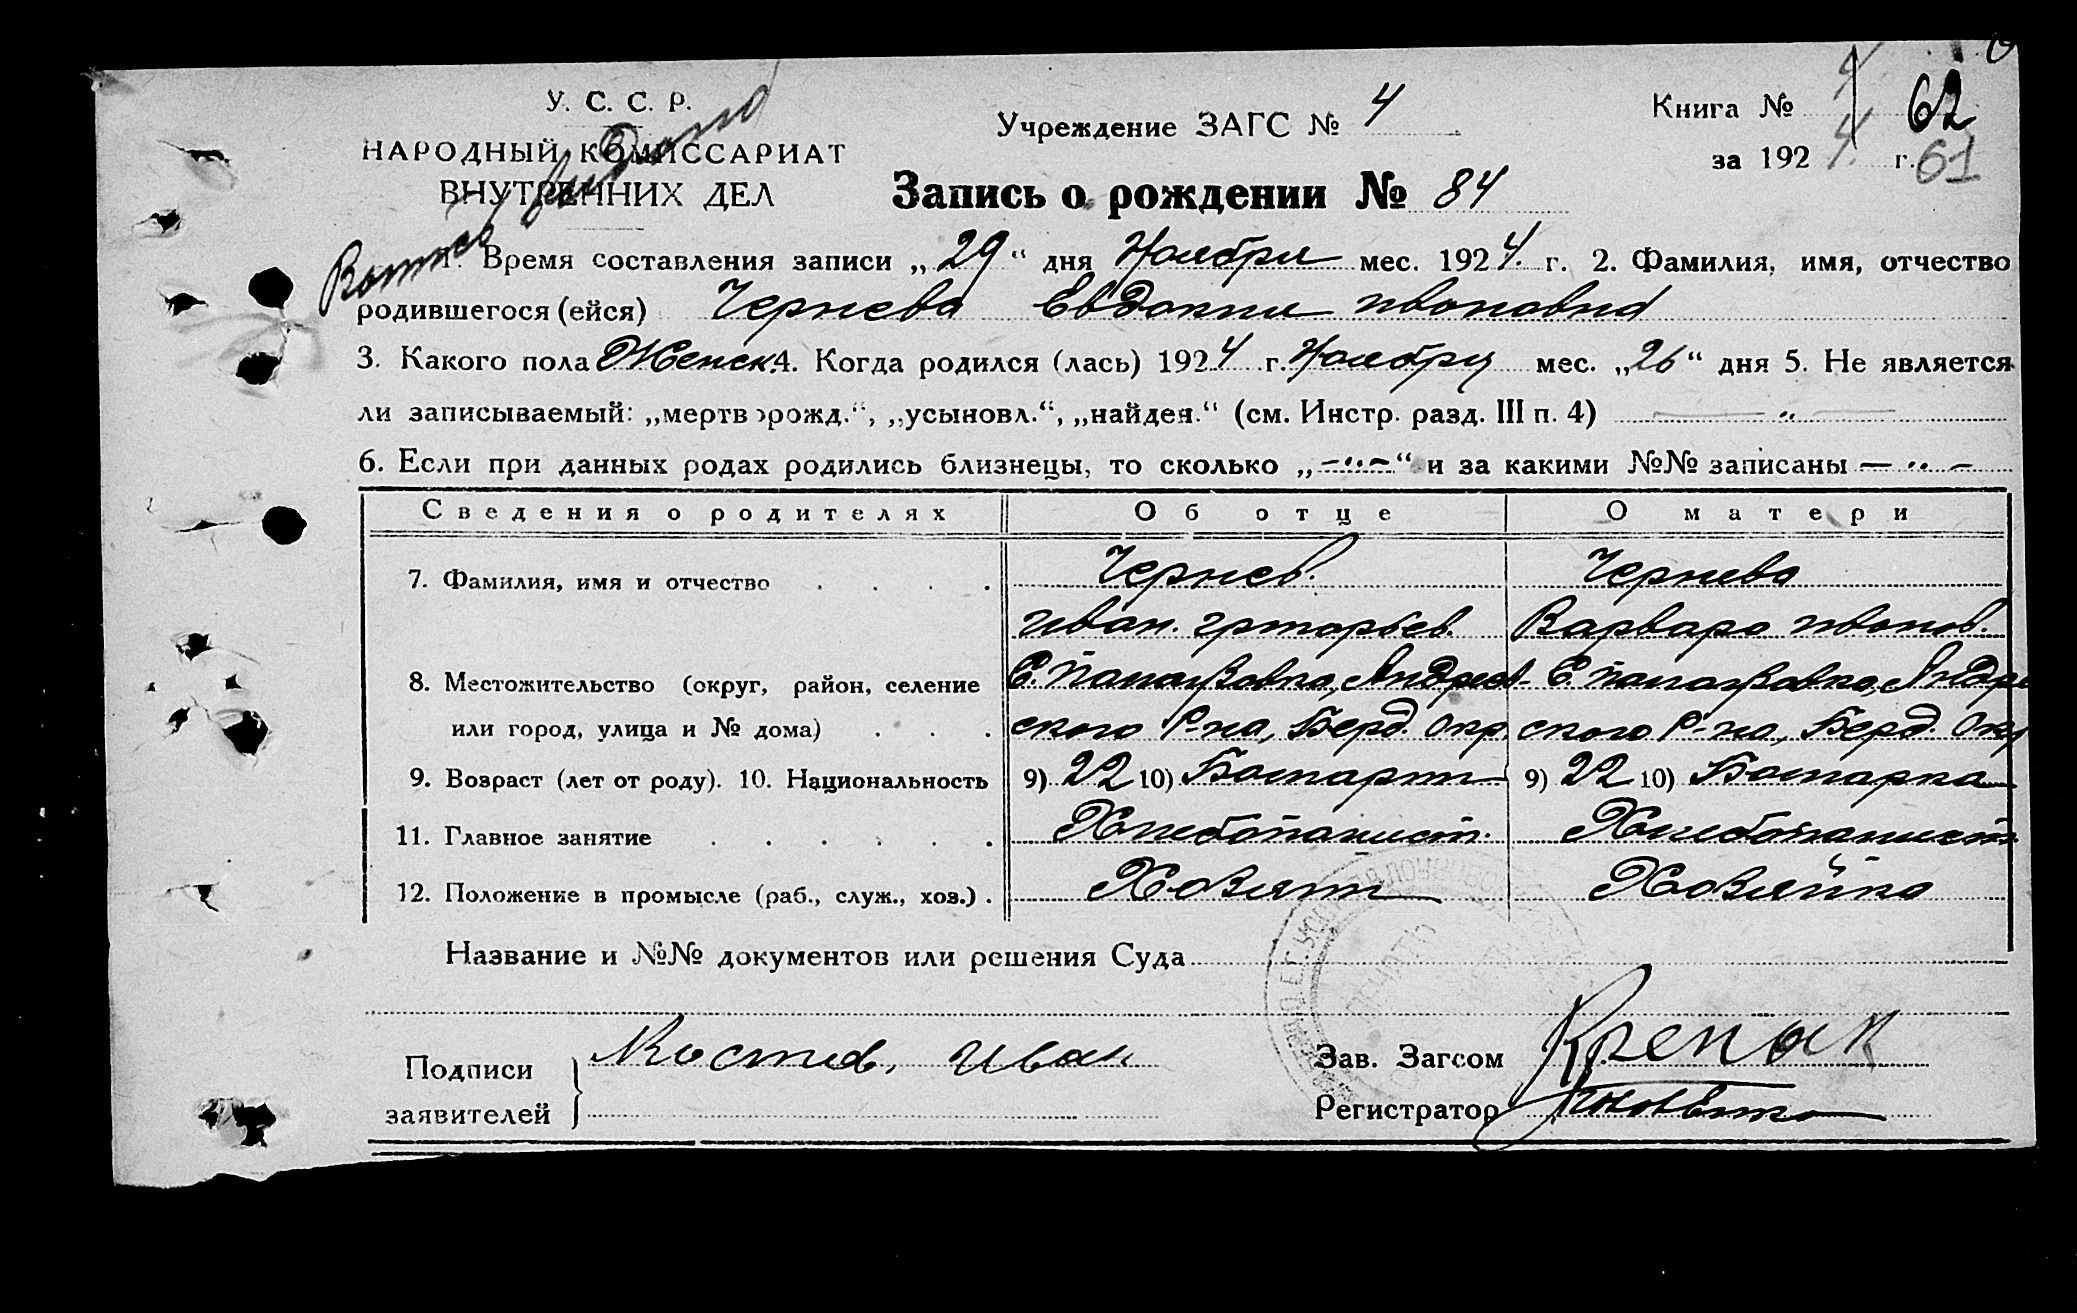 У. С. С. Р.
НАРОДНЫЙ КОМИССАРИАТ
ВНУТРЕННИХ ДЕЛ
Учреждение ЗАГС № 4
Книга № 62
за 1924 г. 61
Запись о рождении № 84
1. Время составления записи „29“ дня Ноября мес. 1924. г. 2. Фамилия, имя, отчество
родившегося (ейся) Чернева Евдокия Ивановна
3. Какого пола Женск. 4. Когда родился (лась) 1924 г. Ноября мес. „26“ дня 5. Не является
ли записываемый: „мертворожд.“, „усыновл.“, „найден.“ (см. Инстр. разд. III п. 4) — „ —
6. Если при данных родах родились близнецы, то сколько „-„-“ и за какими №№ записаны — „ —
Сведения о родителях Об отце О матери
7. Фамилия, имя и отчество Чернев. Чернева
Иван. Григорьев. Варвара Иванов.
8. Местожительство (округ, район, селение
или город, улица и № дома) ского Р-на, Берд. Окр. ского Р-на, Берд. Окр
9. Возраст (лет от роду). 10. Национальность 9) 22 10) Болгарин 9) 22 10) Болгарка
11. Главное занятие Хлебопашест. Хлебопашест.
12. Положение в промысле (раб., служ., хоз.) Хозяин Хозяйка
Название и №№ документов или решения Суда
Подписи
заявителей Костев, Иван
Зав. Загсом
Регистратор